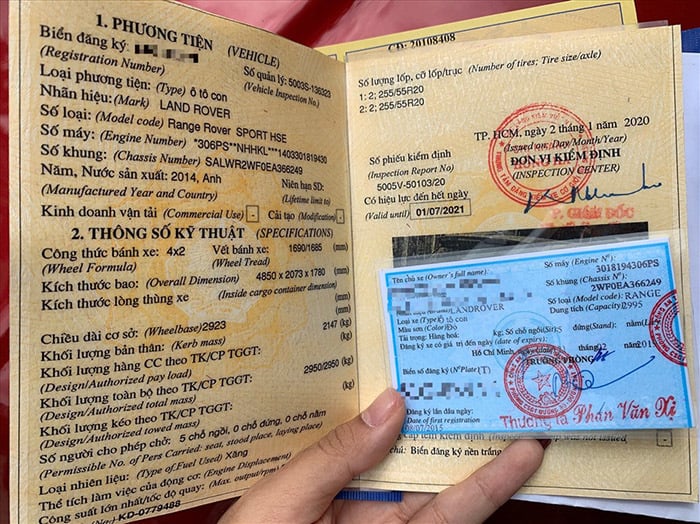 1. PHƯƠNG TIỆN (VEHICLE)
Biển đăng ký:
(Registration Number)
Số quản lý: 5003S-136323
(Vehicle Inspection No.)
Loại phương tiện: (Type) ô tô con
Nhãn hiệu: (Mark) LAND ROVER
Số loại: (Model code) Range Rover SPORT HSE
Số máy: (Engine Number) *306PS**NHHKL***1403301819430
Số khung: (Chassis Number) SALWR2WF0EA366249
Năm, Nước sản xuất: 2014, Anh
(Manufactured Year and Country)
Niên hạn SD:
(Lifetime limit to)
Kinh doanh vận tải (Commercial Use) - Cải tạo (Modification) -
2. THÔNG SỐ KỸ THUẬT (SPECIFICATIONS)
Công thức bánh xe: 4x2 Vết bánh xe: 1690/1685 (mm)
(Wheel Formula) (Wheel Tread)
Kích thước bao: (Overall Dimension) 4850 x 2073 x 1780 (mm)
Kích thước lòng thùng xe (Inside cargo container dimension) (mm)
Chiều dài cơ sở: (Wheelbase) 2923 (mm)
Khối lượng bản thân: (Kerb mass) 2147 (kg)
Khối lượng hàng CC theo TK/CP TGGT: (kg)
(Design/Authorized pay load)
Khối lượng toàn bộ theo TK/CP TGGT: 2950/2950 (kg)
(Design/Authorized total mass)
Khối lượng kéo theo TK/CP TGGT: (kg)
(Design/Authorized towed mass)
Số người cho phép chở: 5 chỗ ngồi, 0 chỗ đứng, 0 chỗ nằm
(Permissible No. of Pers Carried: seat, stood place, laying place)
Loại nhiên liệu: (Type of Fuel Used) Xăng
Thể tích làm việc của động cơ: (Engine Displacement)
Công suất lớn nhất/tốc độ quay: (Max. output/rpm)
KD-0779488
CD: 20108408
Số lượng lốp, cỡ lốp/trục (Number of tires; Tire size/axle)
1: 2; 255/55R20
2: 2; 255/55R20
TP. HCM, ngày 2 tháng 1 năm 2020
(Issued on: Day/Month/Year)
Số phiếu kiểm định
(Inspection Report No)
5005V-50103/20
ĐƠN VỊ KIỂM ĐỊNH
(INSPECTION CENTER)
Có hiệu lực đến hết ngày
(Valid until) 01/07/2021
P. GIÁM ĐỐC
Tên chủ xe (Owner's full name):
Số máy (Engine Nº):
3018194306PS
Số khung (Chassis Nº):
2WF0EA366249
LANDROVER
Số loại (Model code): RANGE
Loại xe (Type) ô tô con
Dung tích (Capacity): 2995
Màu sơn (Color) Đỏ
Tải trọng: Hàng hoá: kg; Số chỗ ngồi (Sit): đứng (Stand):
Đăng ký xe có giá trị đến ngày (date of expiry):
Hồ Chí Minh
TRƯỞNG PHÒNG
Biển số đăng ký (NºPlate)
Đăng ký lần đầu ngày:
Date of first registration
Thượng tá Phan Văn Xị
Biển đăng ký nền trắng